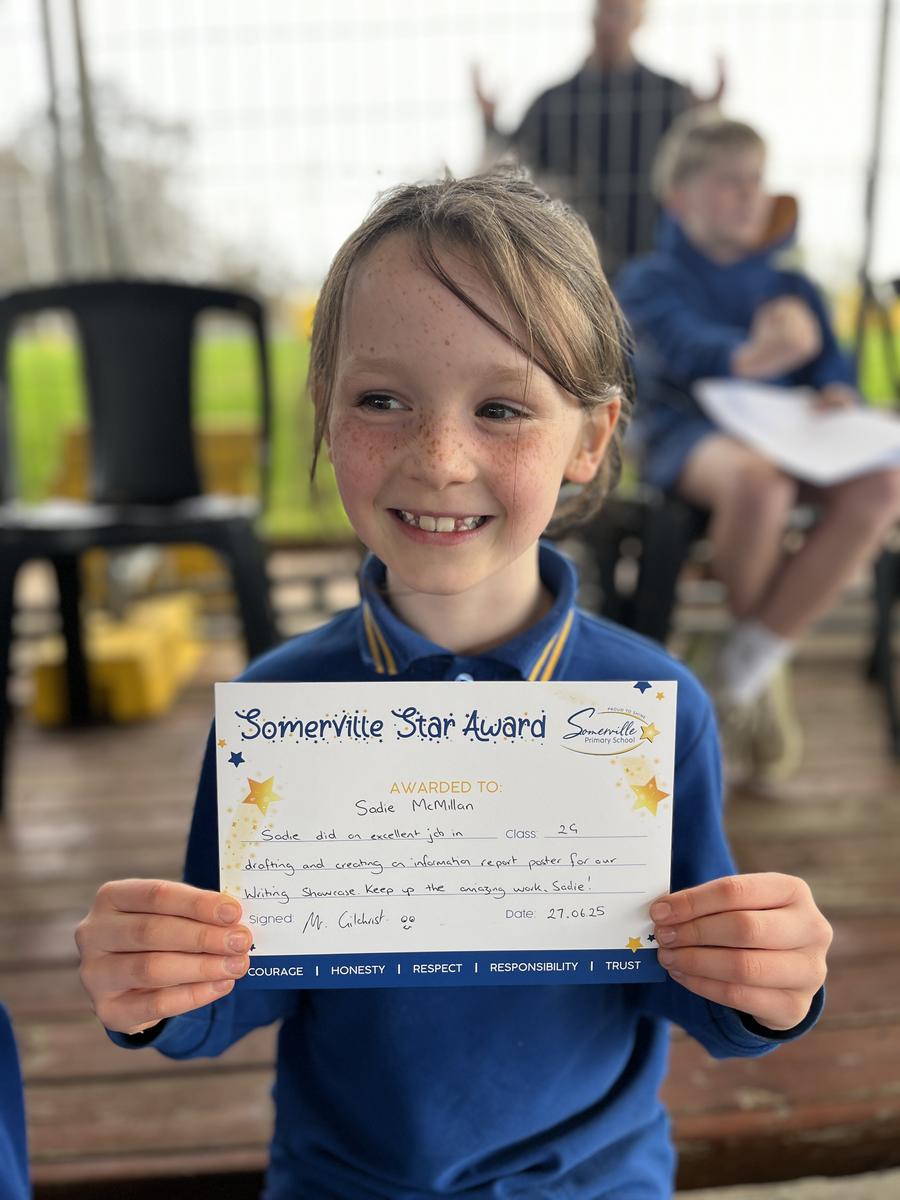 Somerville Star Award
PROUD TO SHINE
Somerville
Primary School
AWARDED TO:
Sadie McMillan
Sadie did an excellent job in Class: 2G
drafting and creating an information report poster for our
Writing Showcase. Keep up the amazing work, Sadie!
Signed: Mr. Gilchrist Date: 27.06.25
COURAGE | HONESTY | RESPECT | RESPONSIBILITY | TRUST